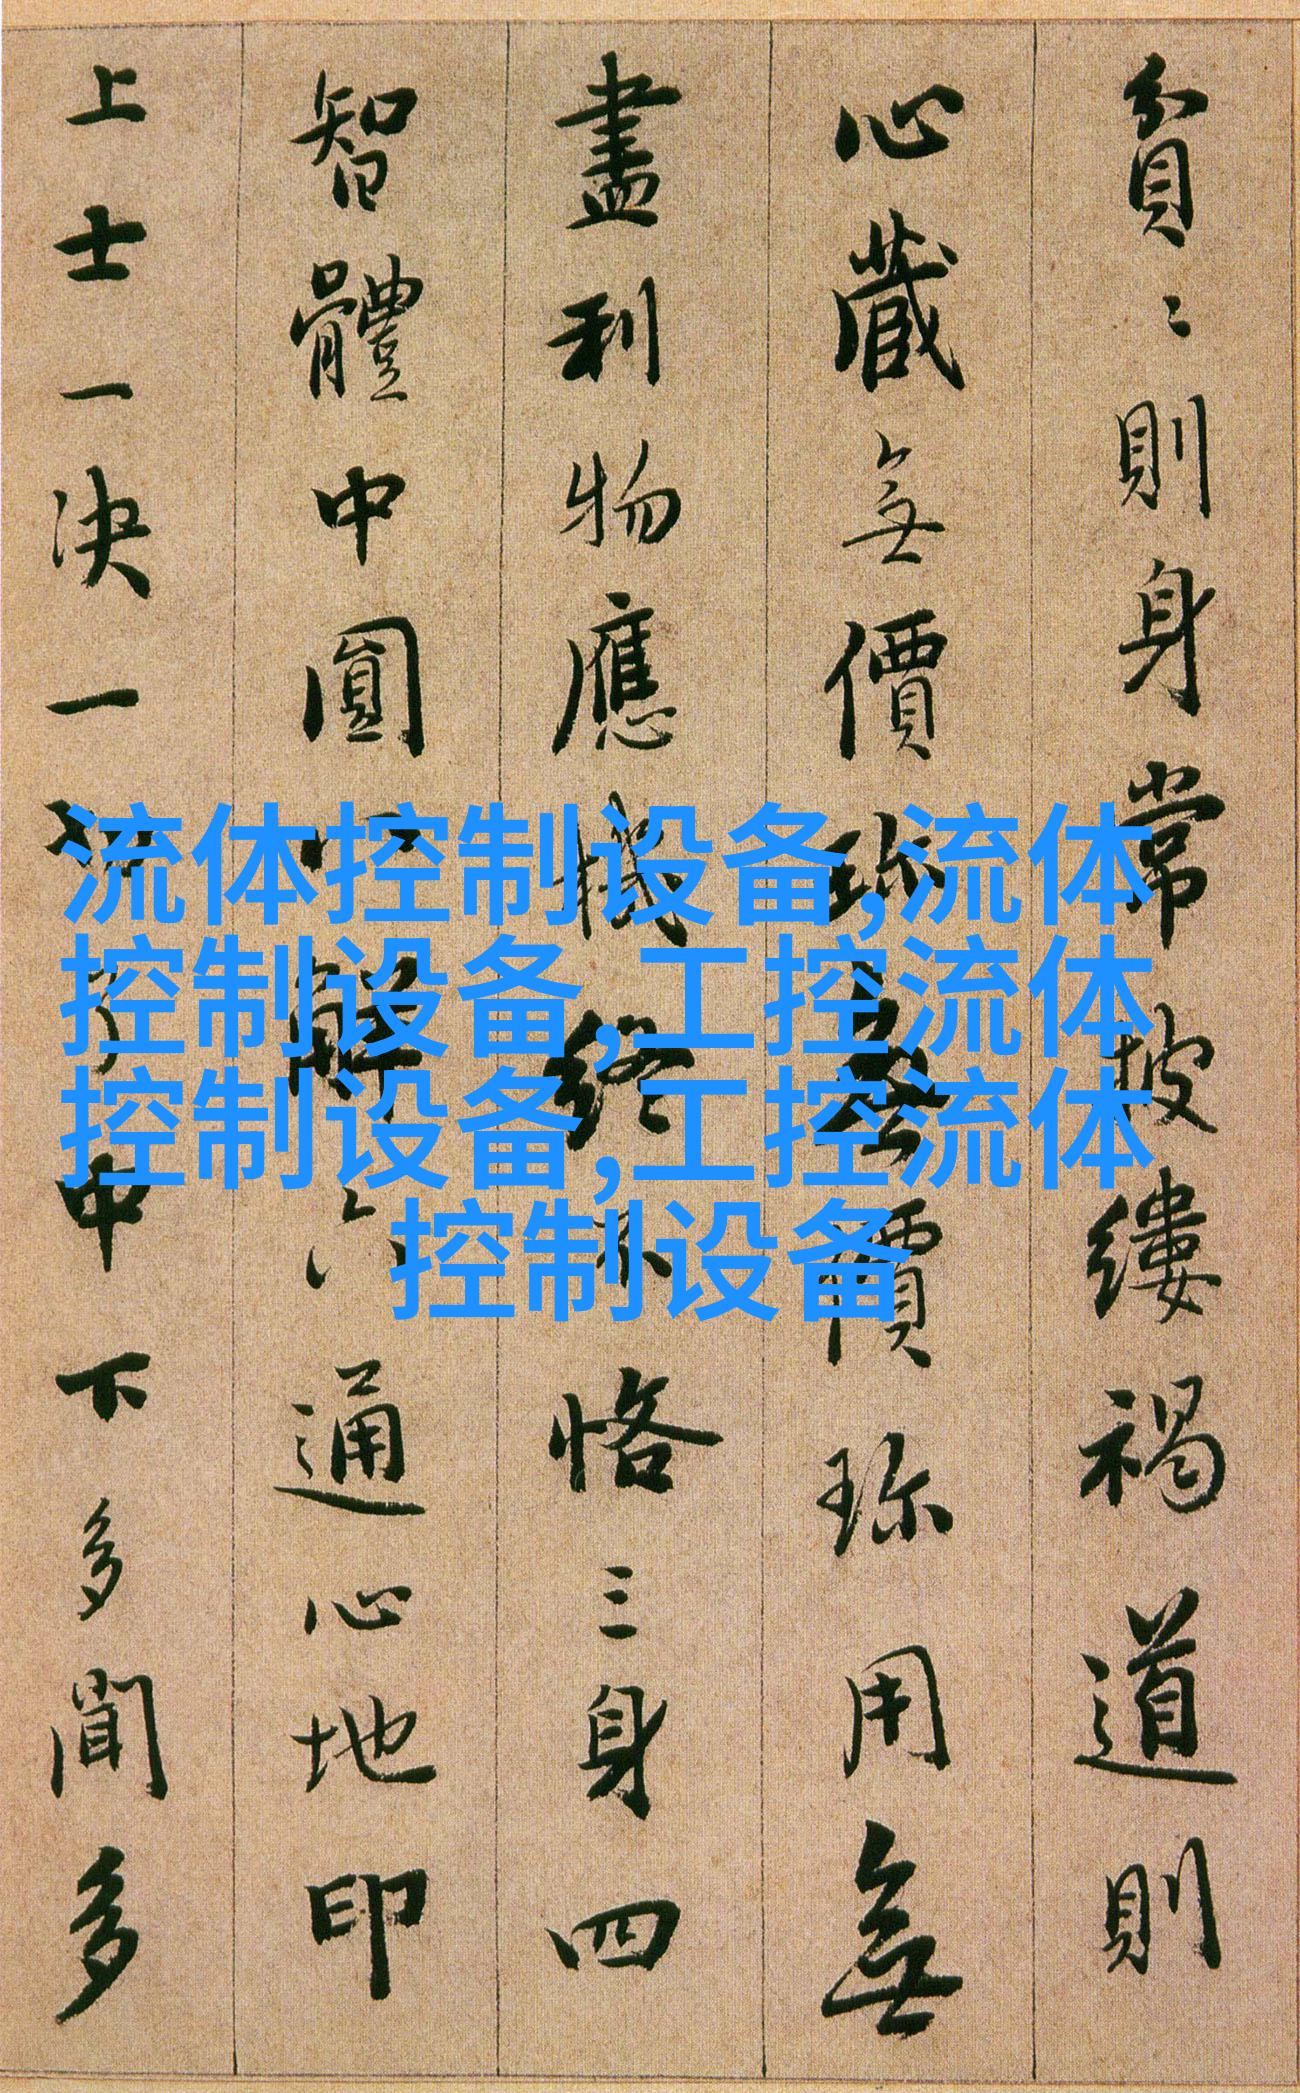 貧〻則身常披縷褐道則
心藏無價珍無價珍用無
盡利物應機終不恪三身四
智體中圓八解六通心地印
上士一決一切了中下多聞多
流体控制设备,流体
控制设备,工控流体
控制设备,工控流体
控制设备